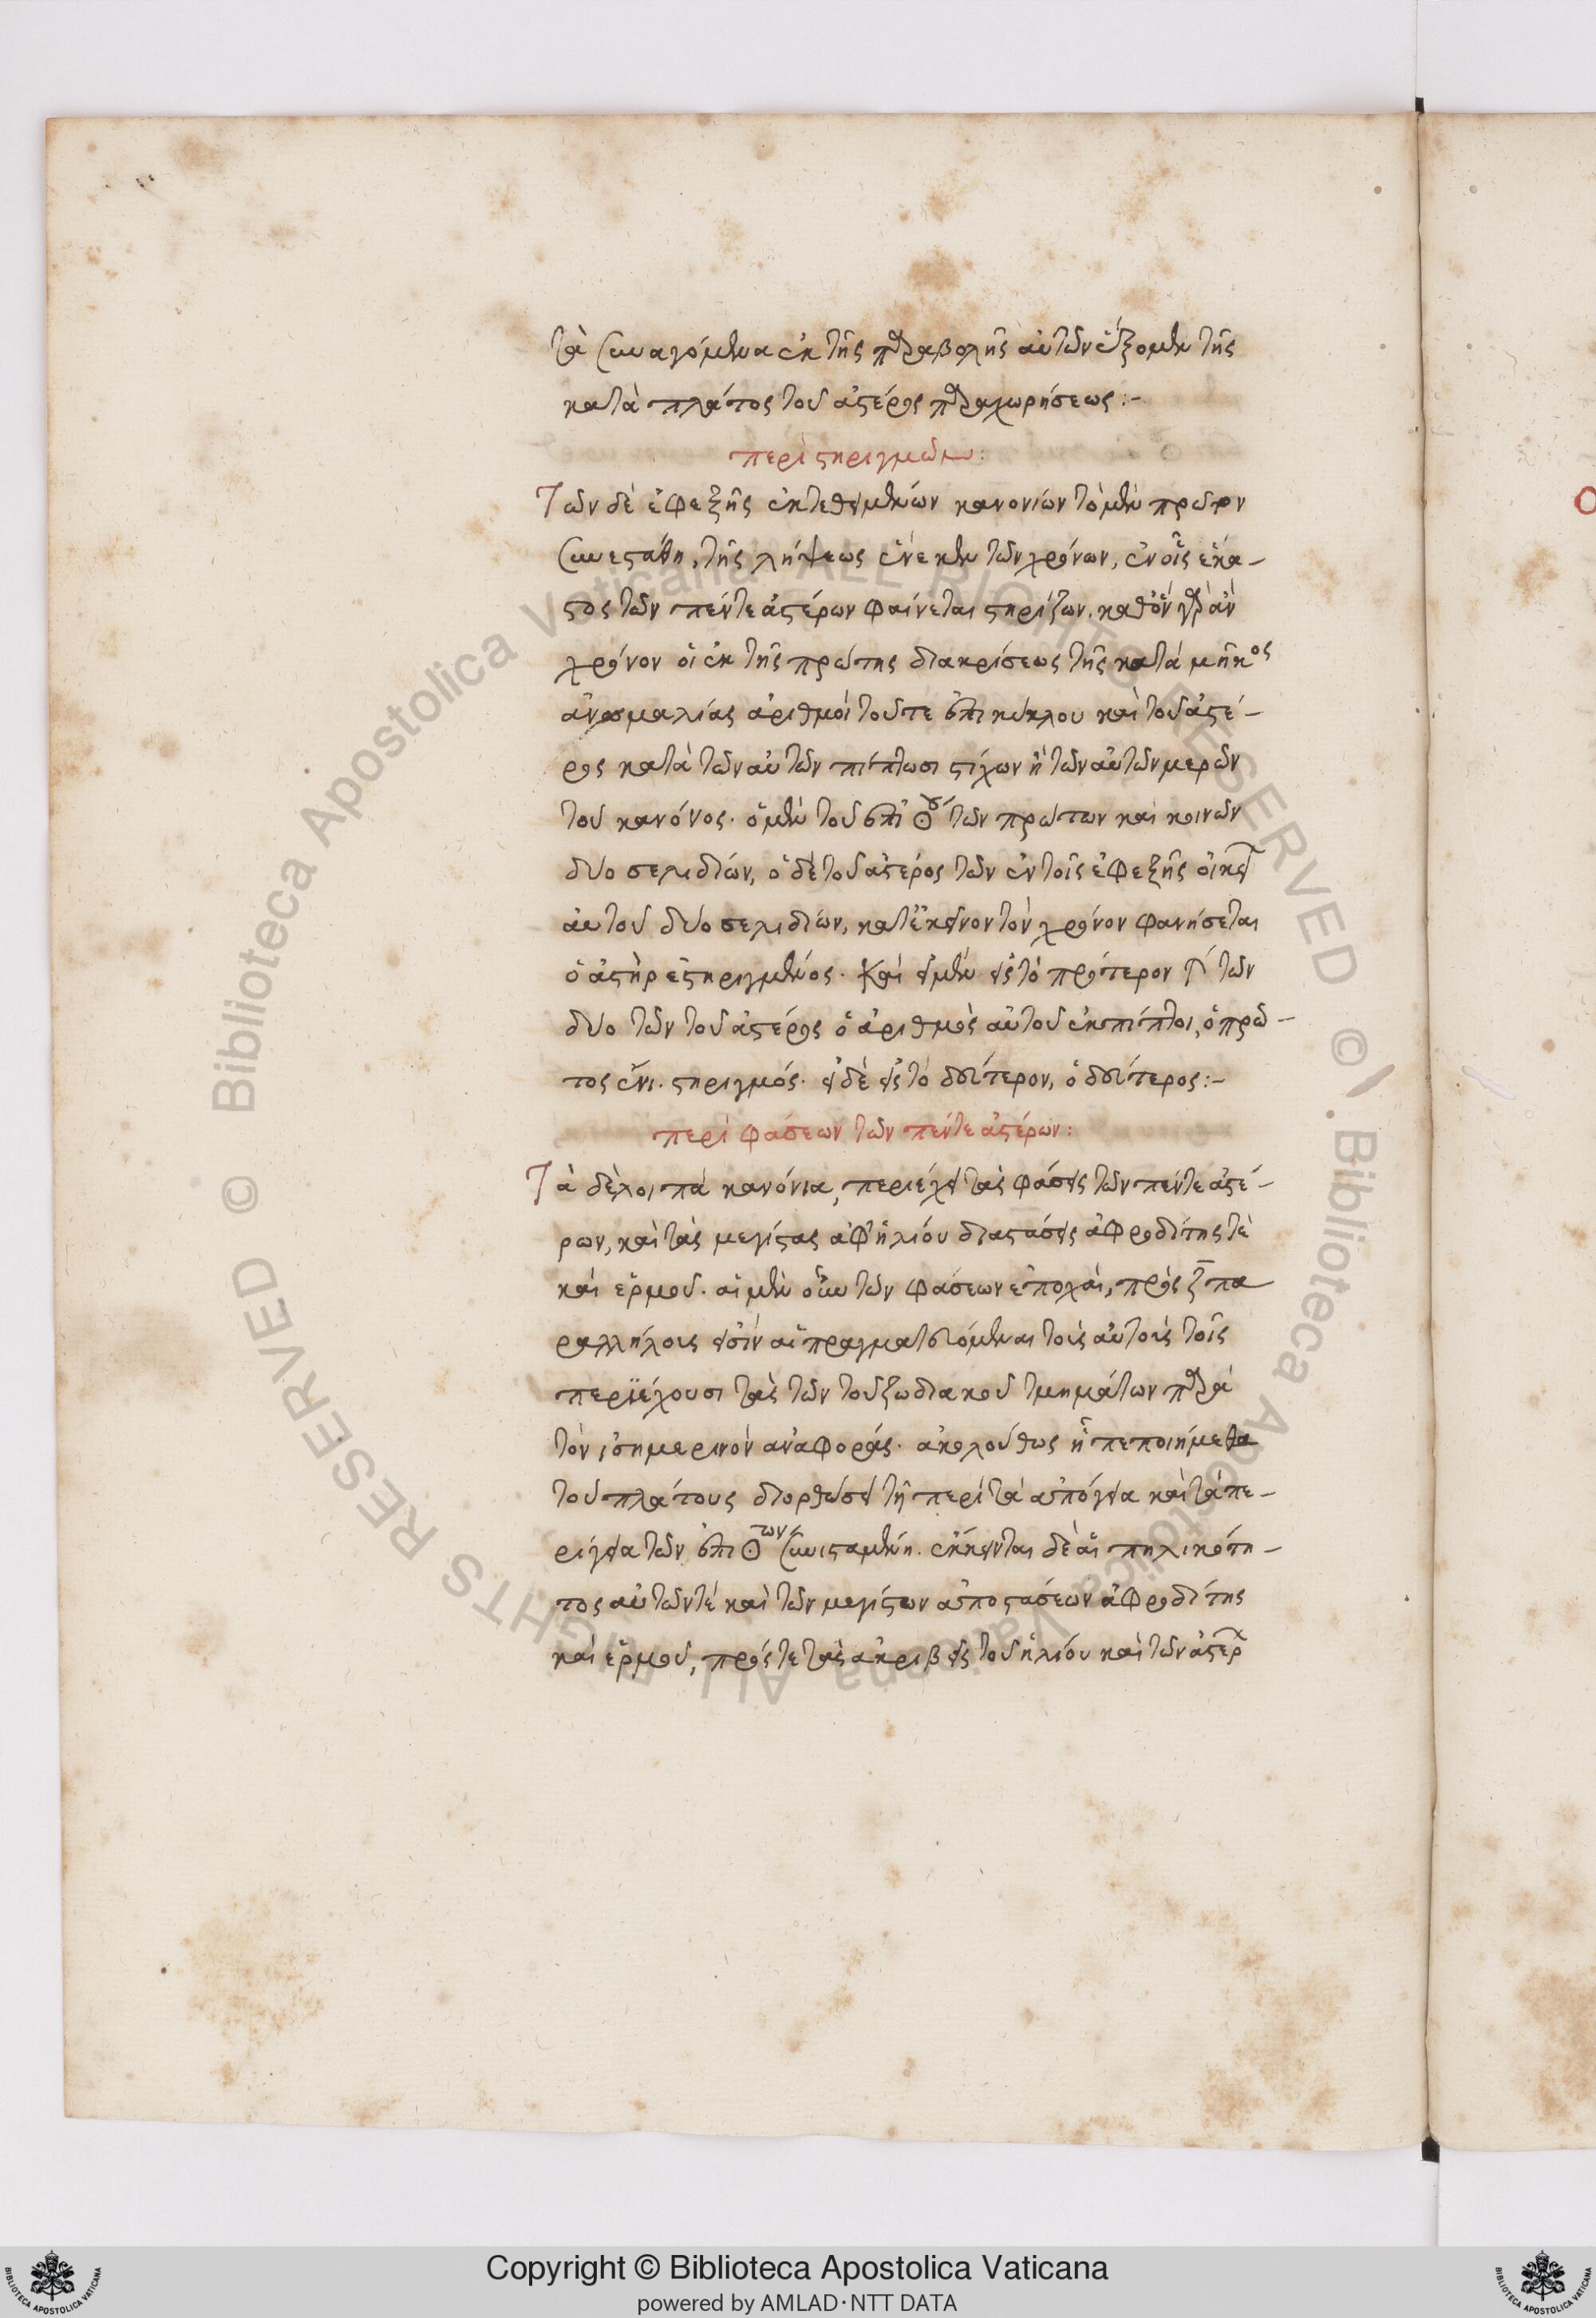 τὰ συναγόμενα ἐκ τῆς παραβολῆς αὐτῶν ἕξομεν τῆς
κατὰ πλάτος τοῦ ἀστέρος παραχωρήσεως:-
περὶ στηριγμῶν:
Τῶν δὲ ἐφεξῆς ἐκτεθειμένων κανονίων τὸ μὲν πρῶτον
συνεστάθη, τῆς λήψεως ἕνεκεν τῶν χρόνων, ἐν οἷς ἕκα-
στος τῶν πέντε ἀστέρων φαίνεται στηρίζων. καθ' ὃν γὰρ ἂν
χρόνον οἱ ἐκ τῆς πρώτης διακρίσεως τῆς κατὰ μῆκος
ἀνωμαλίας ἀριθμοὶ τοῦ τε ἐπικύκλου καὶ τοῦ ἀστέ-
ρος κατὰ τῶν αὐτῶν πίπτωσι στίχων ἢ τῶν αὐτῶν μερῶν
τοῦ κανόνος. ὁ μὲν τοῦ ἐπι☉ου τῶν πρώτων καὶ κοινῶν
δύο σελιδίων, ὁ δὲ τοῦ ἀστέρος τῶν ἐν τοῖς ἐφεξῆς οἰκεί
αὐτοῦ δύο σελιδίων, κατ' ἐκεῖνον τὸν χρόνον φανήσεται
ὁ ἀστὴρ ἐστηριγμένος. καὶ εἰ μὲν εἰς τὸ πρότερον τῶν
δύο τῶν τοῦ ἀστέρος ὁ ἀριθμὸς αὐτοῦ ἐκπίπτοι, ὁ πρῶ-
τος ἔσται στηριγμός. εἰ δὲ εἰς τὸ δεύτερον, ὁ δεύτερος:-
περὶ φάσεων τῶν πέντε ἀστέρων:
Τὰ δὲ λοιπὰ κανόνια, περιέχει τὰς φάσεις τῶν πέντε ἀστέ-
ρων, καὶ τὰς μεγίστας ἀφ' ἡλίου διαστάσεις ἀφροδίτης τὲ
καὶ ἑρμοῦ. αἱ μὲν οὖν τῶν φάσεων ἐποχαὶ, πρὸς ζ πα
ραλλήλοις εἰσὶν αἱ πραγματευόμεναι τοῖς αὐτοῖς τοῖς
περιέχουσι τὰς τῶν τοῦ ζωδιακοῦ τμημάτων παρὰ
τὸν ἰσημερινὸν ἀναφοράς. ἀκολούθως ᾗ πεποιήμεθα
τοῦ πλάτους διορθώσει τῇ περὶ τὰ ἀπόγεια καὶ τὰ πε-
ρίγεια τῶν ἐπι☉ων συνισταμένη. ἔκκεινται δὲ αἱ πηλικότη-
τος αὐτῶν τὲ καὶ τῶν μεγίστων ἀποστάσεων ἀφροδίτης
καὶ ἑρμοῦ, πρός τε τὰς ἀκριβεῖς τοῦ ἡλίου καὶ τῶν ἀστέρ
Copyright © Biblioteca Apostolica Vaticana
powered by AMLAD·NTT DATA